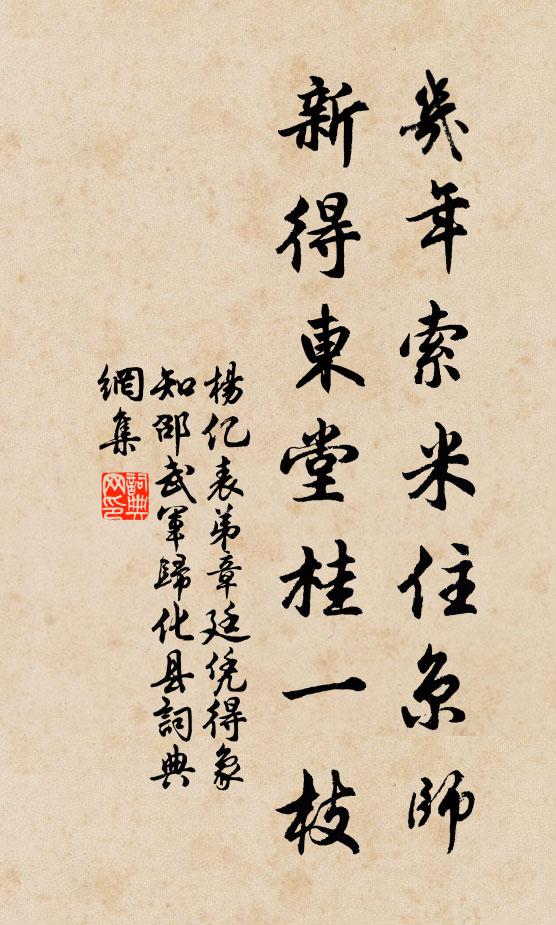 幾年索米住京師
新得東堂桂一枝
楊億表弟章廷凭得象
知邵武軍歸化县詞典
網集
詞典
网印